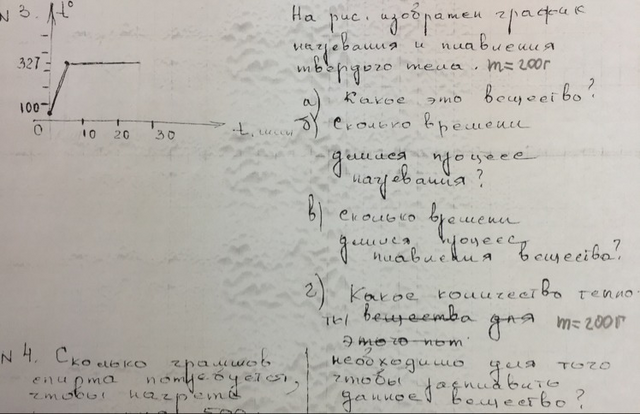 N 3.
t°
327
100
0
10 20 30
t, мин
На рис. изображен график
нагревания и плавления
твердого тела. m=200г
а) Какое это вещество?
б) Сколько времени
длился процесс
нагревания?
в) Сколько времени
длился процесс
плавления вещества?
г) Какое количество тепло-
ты вещества для m=200г
этого пот
необходимо для того
чтобы расплавить
данное вещество?
N 4. Сколько граммов
спирта потребуется,
чтобы нагреть
500